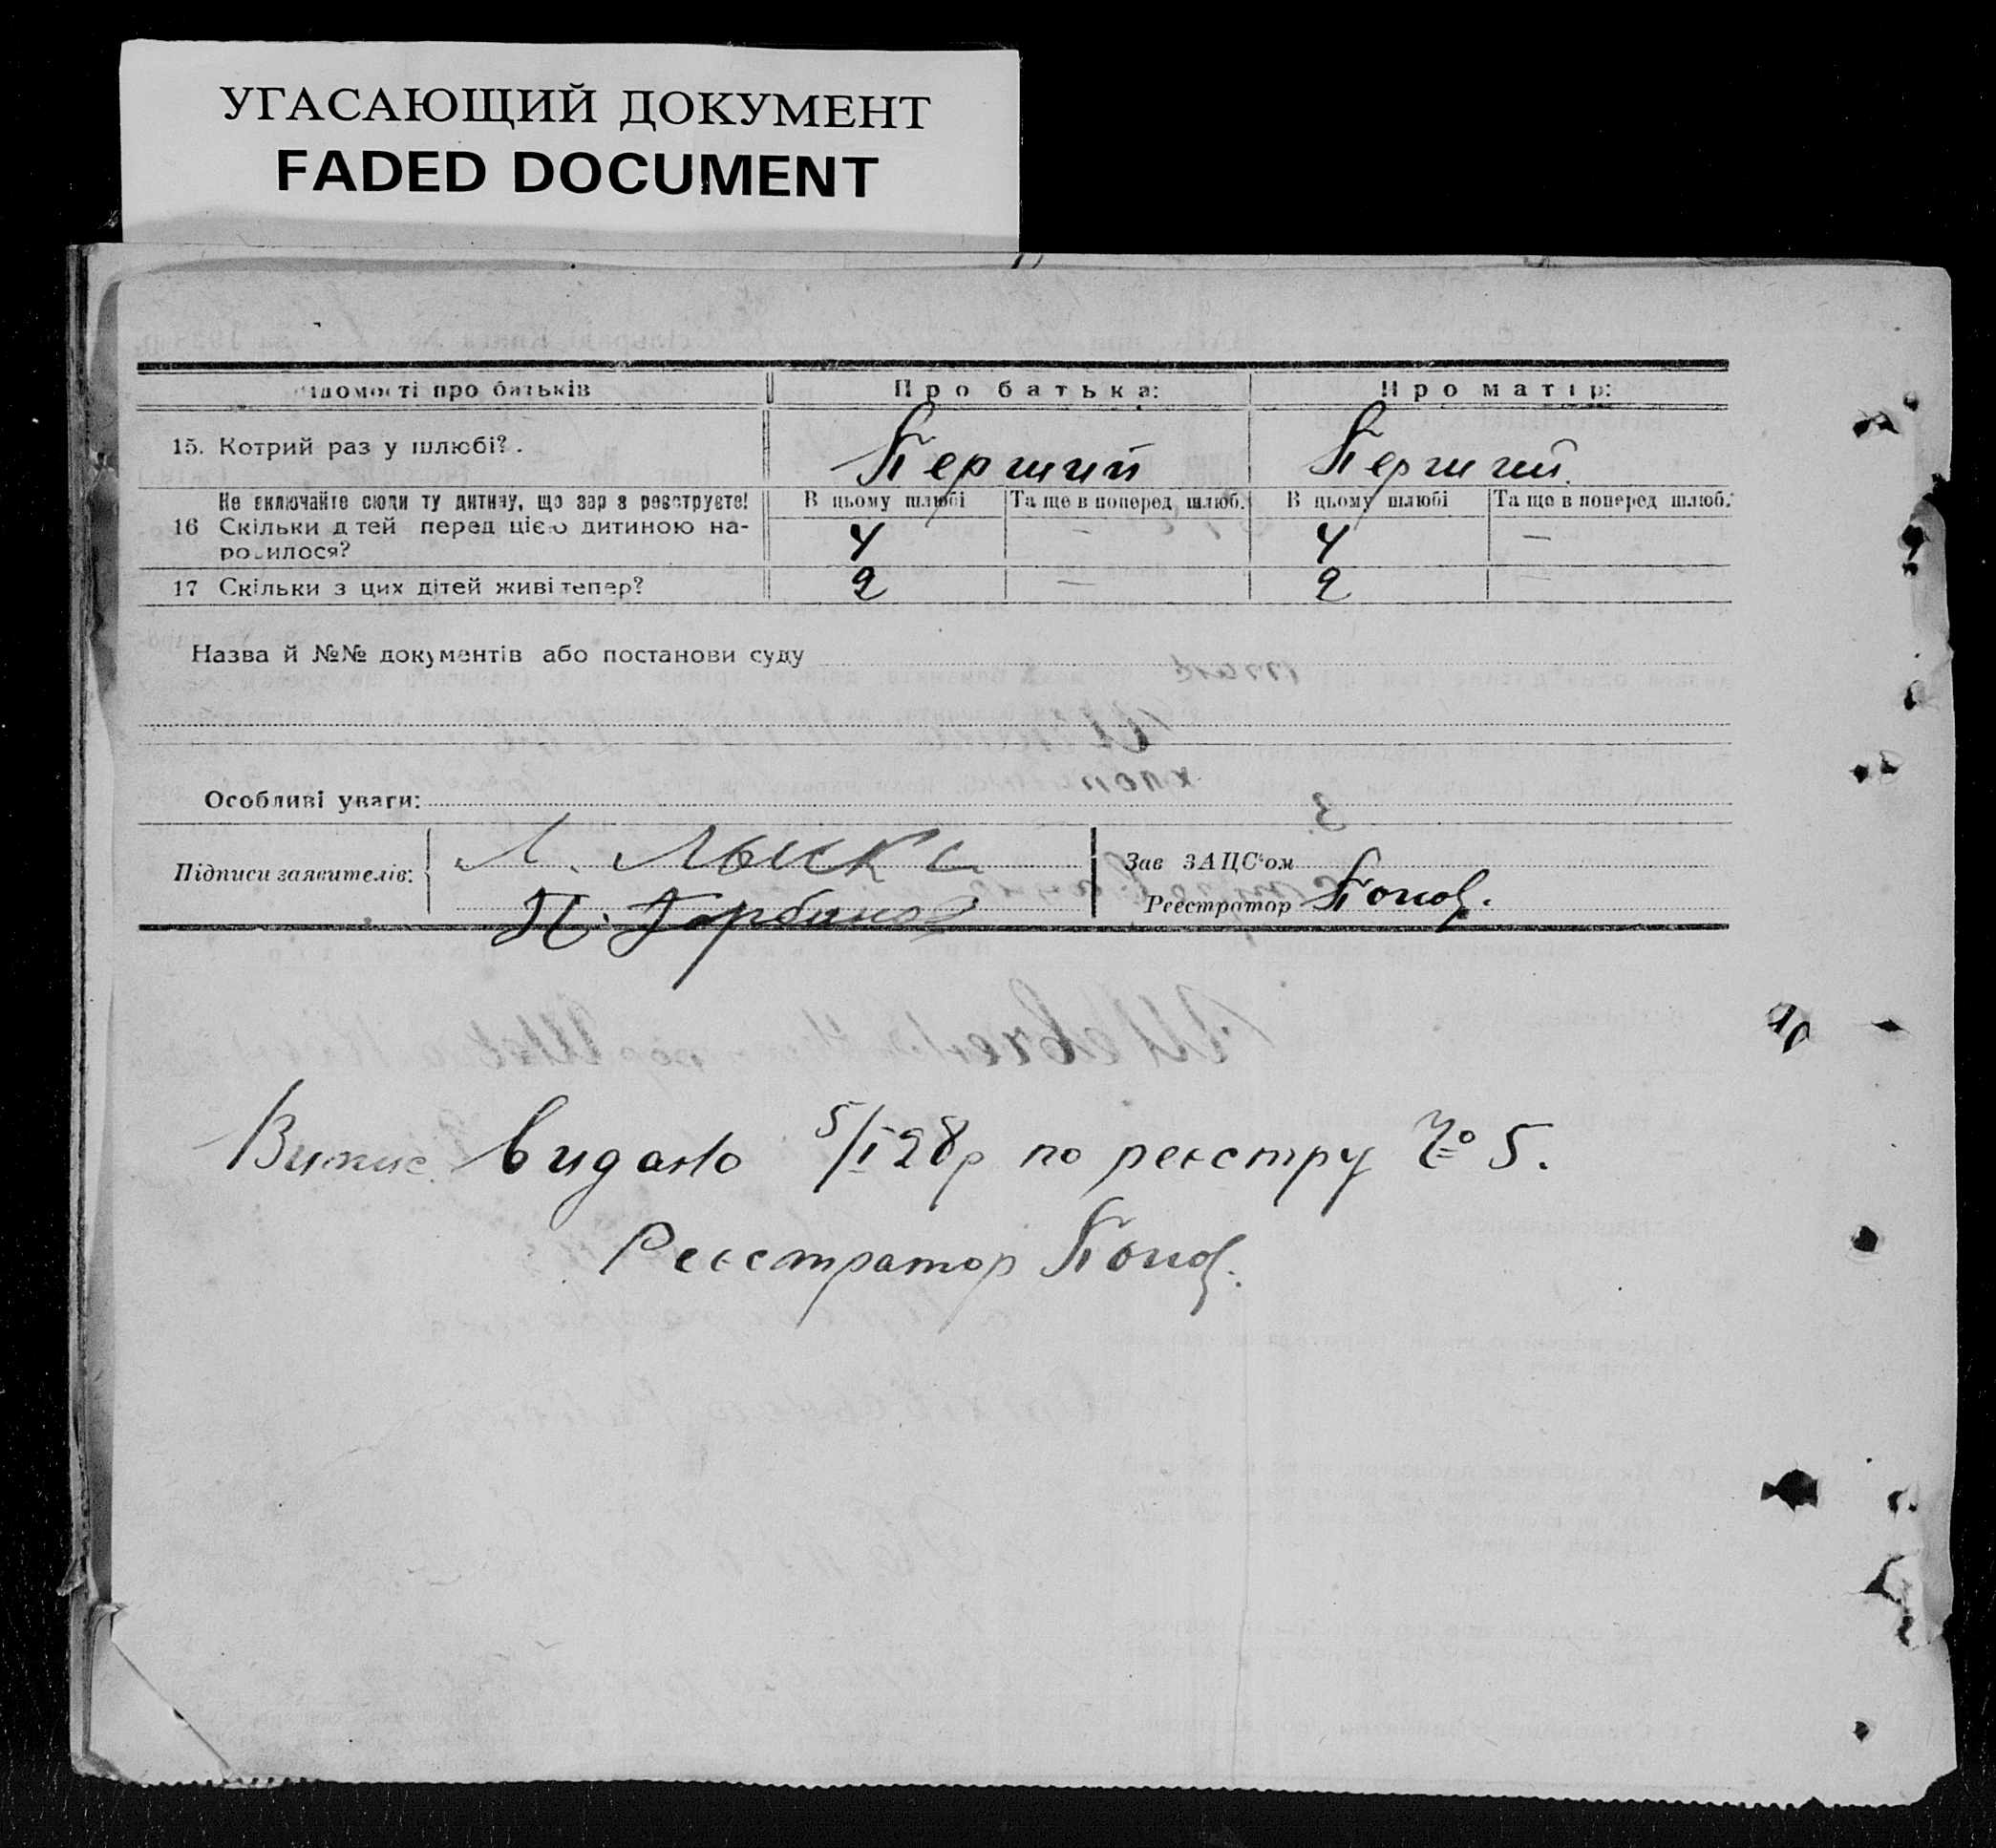 УГАСАЮЩИЙ ДОКУМЕНТ
FADED DOCUMENT
ідомості про батьків Про батька: Про матір:
15. Котрий раз у шлюбі?. Перший Перший
Не включайте сюди ту дитину, що зараз реєструєте! В цьому шлюбі Та ще в поперед шлюб. В цьому шлюбі Та ще в поперед шлюб.
16 Скільки дтей перед цією дитиною на- 4 — 4 —
родилося?
17 Скільки з цих дітей живі тепер? 2 — 2 —
Назва й №№ документів або постанови суду
Особливі уваги:
Підписи заявителів: Л. Зав ЗАЦС'ом
П. Реєстратор Попов.
Випис видано 5/I 28р по реєстру № 5.
Реєстратор Попов.
10